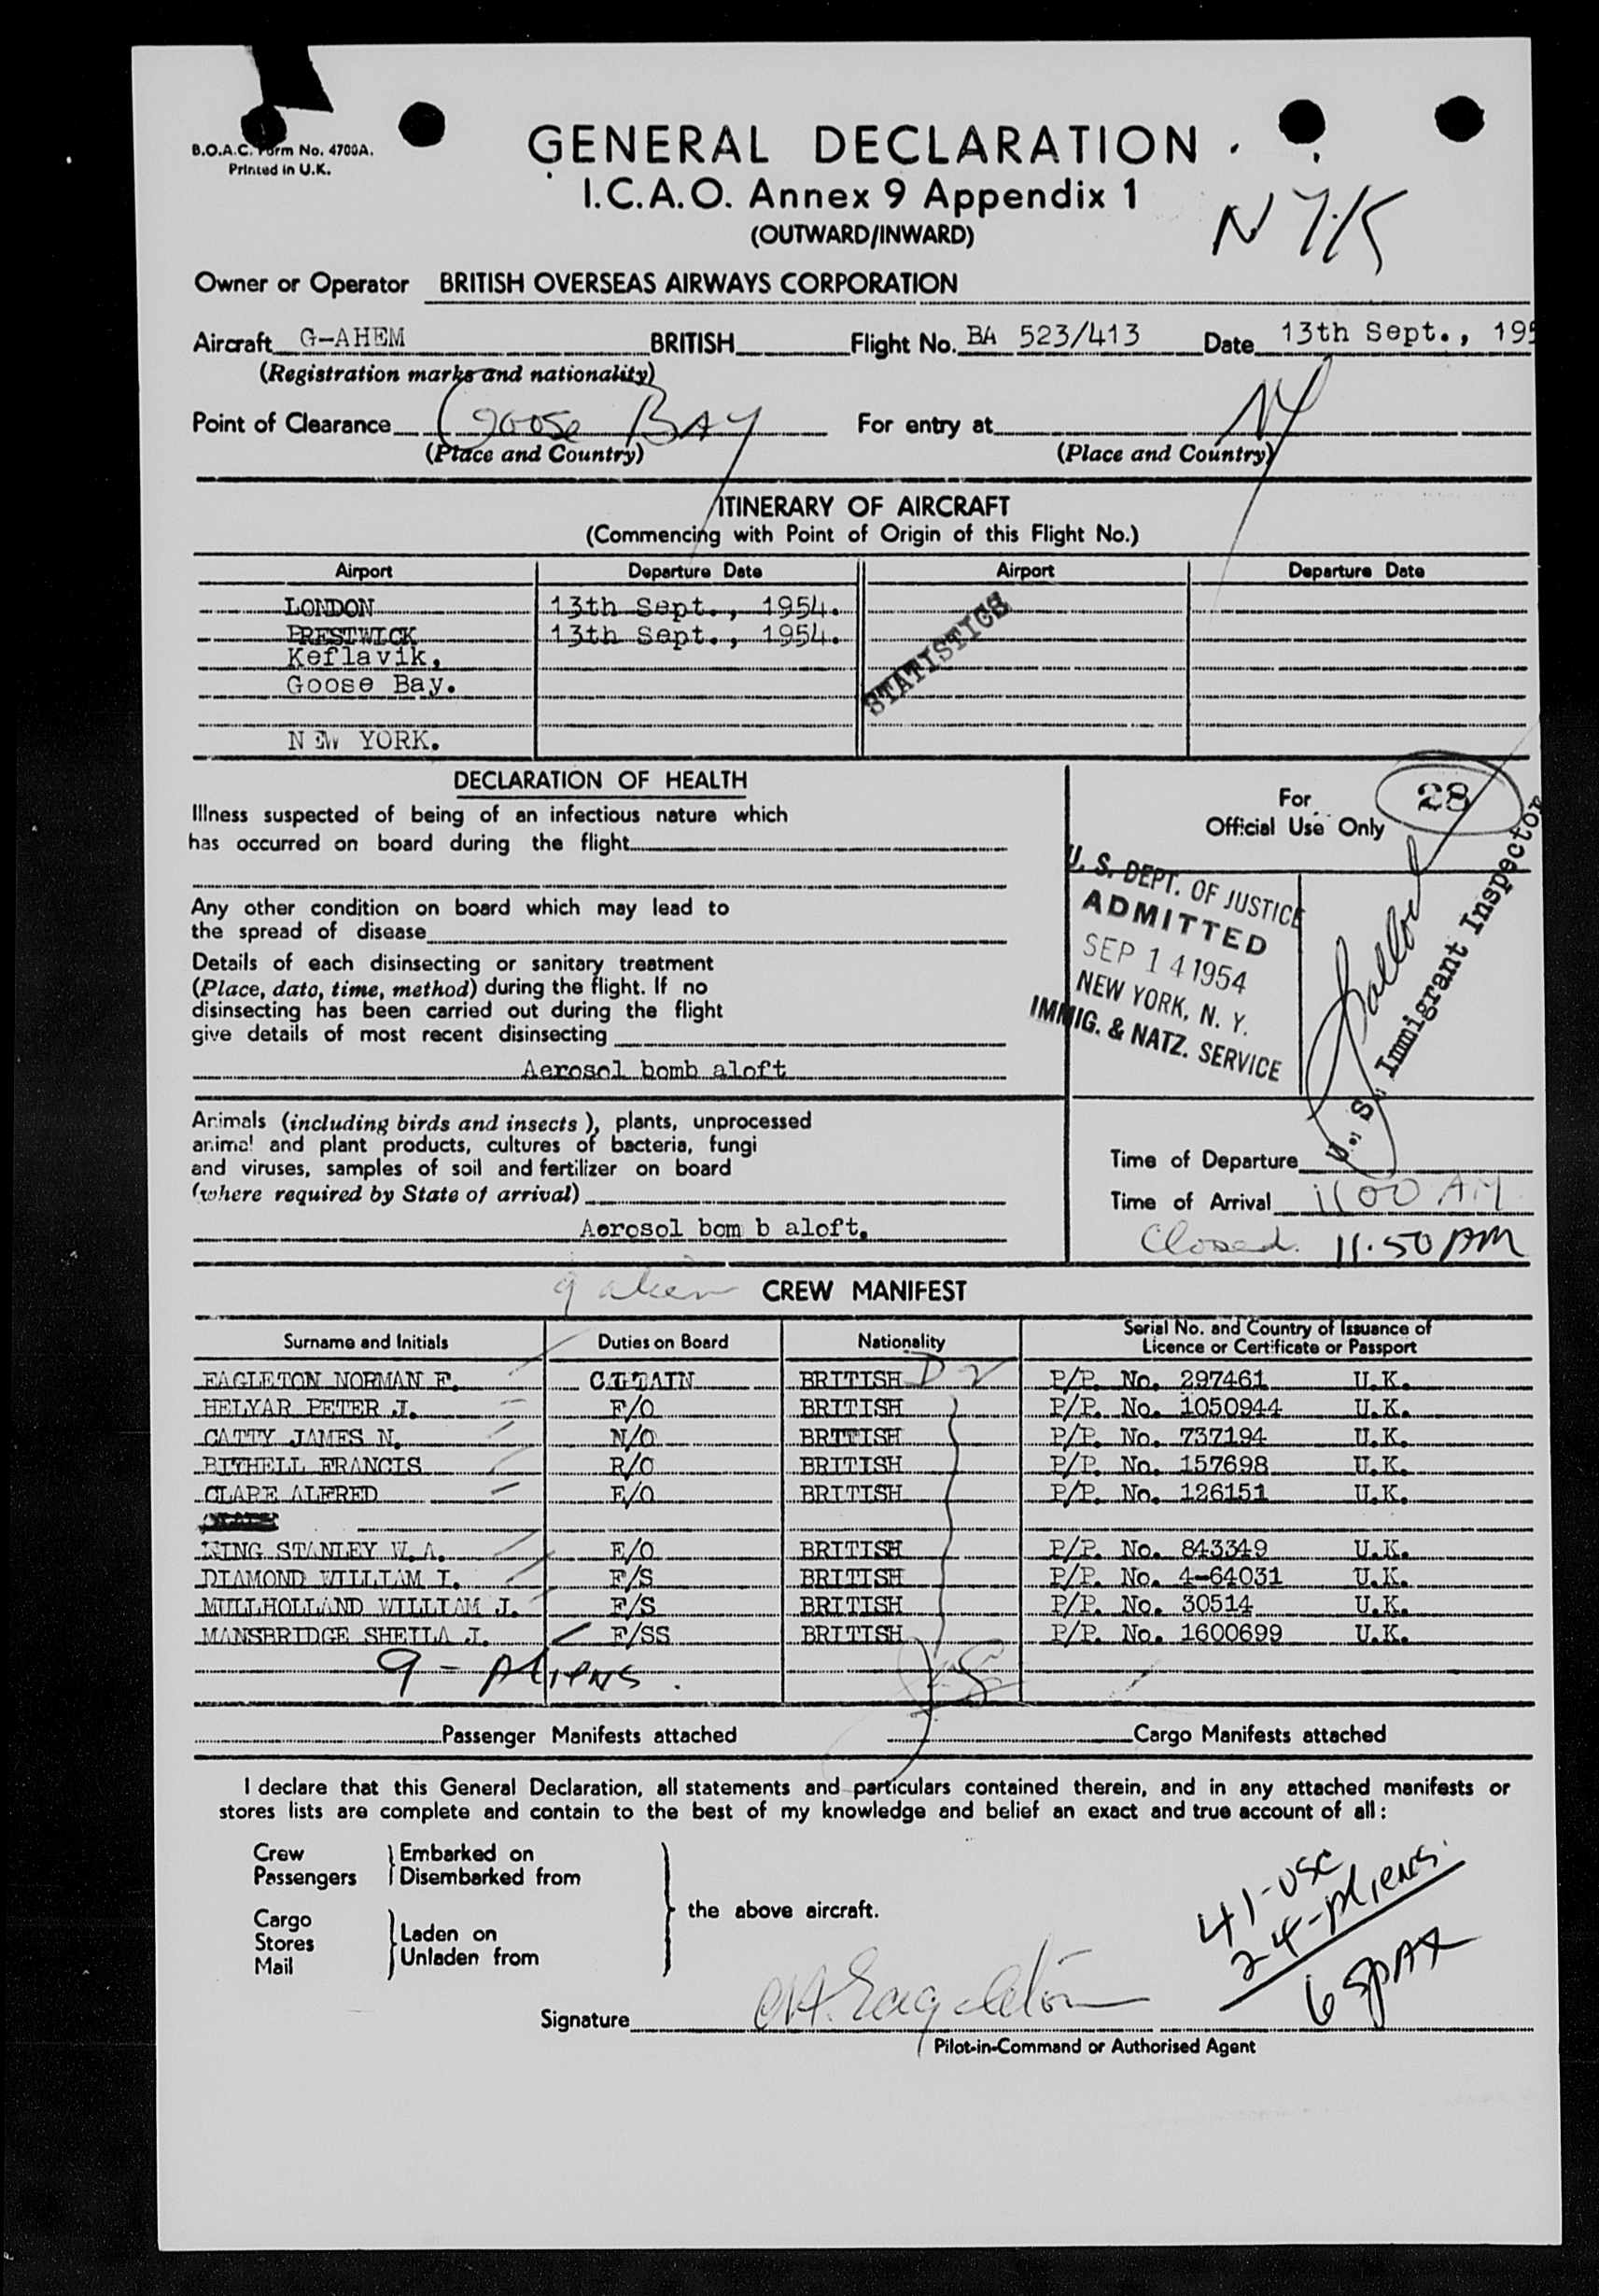 B.O.A.C. Form No. 4700A.
Printed in U.K.
GENERAL DECLARATION
I.C.A.O. Annex 9 Appendix 1
(OUTWARD/INWARD)
NYK
Owner or Operator BRITISH OVERSEAS AIRWAYS CORPORATION
Aircraft G-AHEM BRITISH Flight No. BA 523/413 Date 13th Sept., 195
(Registration marks and nationality)
Point of Clearance Goose BAY For entry at NY
(Place and Country) (Place and Country)
ITINERARY OF AIRCRAFT
(Commencing with Point of Origin of this Flight No.)
Airport Departure Date Airport Departure Date
LONDON 13th Sept., 1954.
PRESTWICK 13th Sept., 1954.
Keflavik,
Goose Bay.
STATISTICS
NEW YORK.
DECLARATION OF HEALTH
Illness suspected of being of an infectious nature which
has occurred on board during the flight
Any other condition on board which may lead to
the spread of disease
Details of each disinsecting or sanitary treatment
(Place, date, time, method) during the flight. If no
disinsecting has been carried out during the flight
give details of most recent disinsecting
Aerosol bomb aloft
For
Official Use Only
28
U. S. DEPT. OF JUSTICE
ADMITTED
SEP 14 1954
NEW YORK, N. Y.
IMMIG. & NATZ. SERVICE
U. S. Immigrant Inspector
Animals (including birds and insects), plants, unprocessed
animal and plant products, cultures of bacteria, fungi
and viruses, samples of soil and fertilizer on board
(where required by State of arrival)
Aerosol bom b aloft.
Time of Departure
Time of Arrival 1100 AM
Closed. 11.50 AM
9 alien CREW MANIFEST
Surname and Initials Duties on Board Nationality Serial No. and Country of Issuance of
Licence or Certificate or Passport
EAGLETON NORMAN F. BRITISH D 2 P/P. No. 297461 U.K.
HELYAR PETER J. F/O BRITISH P/P. No. 1050944 U.K.
CATTY JAMES N. N/O BRITISH P/P. No. 737194 U.K.
BITHELL FRANCIS R/O BRITISH P/P. No. 157698 U.K.
CLARE ALFRED E/O BRITISH P/P. No. 126151 U.K.
KING STANLEY W.A. E/O BRITISH P/P. No. 843349 U.K.
DIAMOND WILLIAM I. F/S BRITISH P/P. No. 4-64031 U.K.
MULLHOLLAND WILLIAM J. F/S BRITISH P/P. No. 30514 U.K.
MANSBRIDGE SHEILA J. F/SS BRITISH P/P. No. 1600699 U.K.
9 - Aliens.
Passenger Manifests attached Cargo Manifests attached
I declare that this General Declaration, all statements and particulars contained therein, and in any attached manifests or
stores lists are complete and contain to the best of my knowledge and belief an exact and true account of all:
Crew Embarked on
Passengers Disembarked from
the above aircraft.
Cargo
Stores Laden on
Mail Unladen from
41-USC
24-Aliens
65 PAX
Signature Eagleton
Pilot-in-Command or Authorised Agent